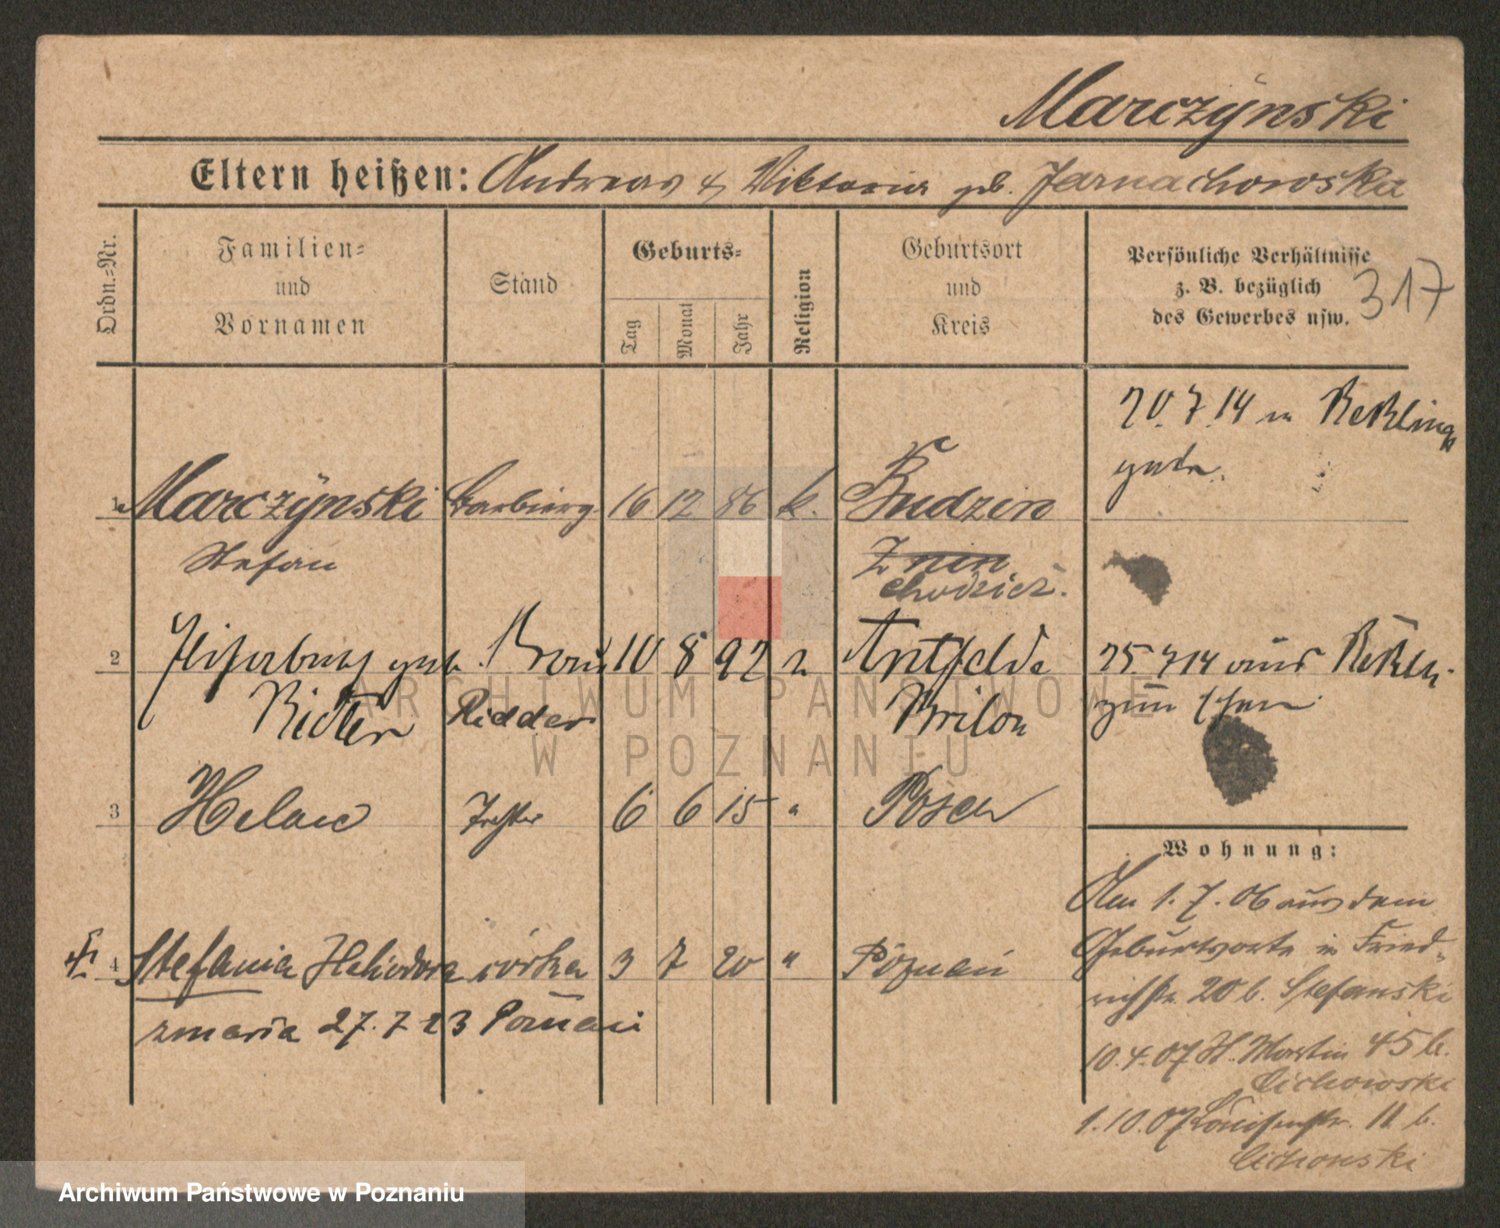 Marczÿnski
Eltern heißen: Andreas & Viktoria geb. Jarnachowska
Ordn.-Nr.
Familien-
und
Vornamen
Stand
Geburts-
Tag
Monat
Jahr
Religion
Geburtsort
und
Kreis
Persönliche Verhältnisse
z. B. bezüglich
des Gewerbes usw.
317
20.7.14 in
1 Marczÿnski 16 12 86 k. Budzin
Stefan
Znin
Chodzież.
2 geb. 10 8 92 Antfeld
Ridder
Brilon
25 7 14 aus
zum
3 Helene Tochter 6 6 15 " Posen
4 Stefania Heliodora córka 3 7 20 " Poznań
zmarła 27.7 23 Poznań
Wohnung:
Am 1.7.06 aus dem
Geburtsorte in Fried-
richstr. 20 b. Stefanski
10.4.07 St. Martin 45 b.
Cichowski
1.10.07 11 b.
Cichowski
ARCHIWUM PAŃSTWOWE
W POZNANIU
Archiwum Państwowe w Poznaniu